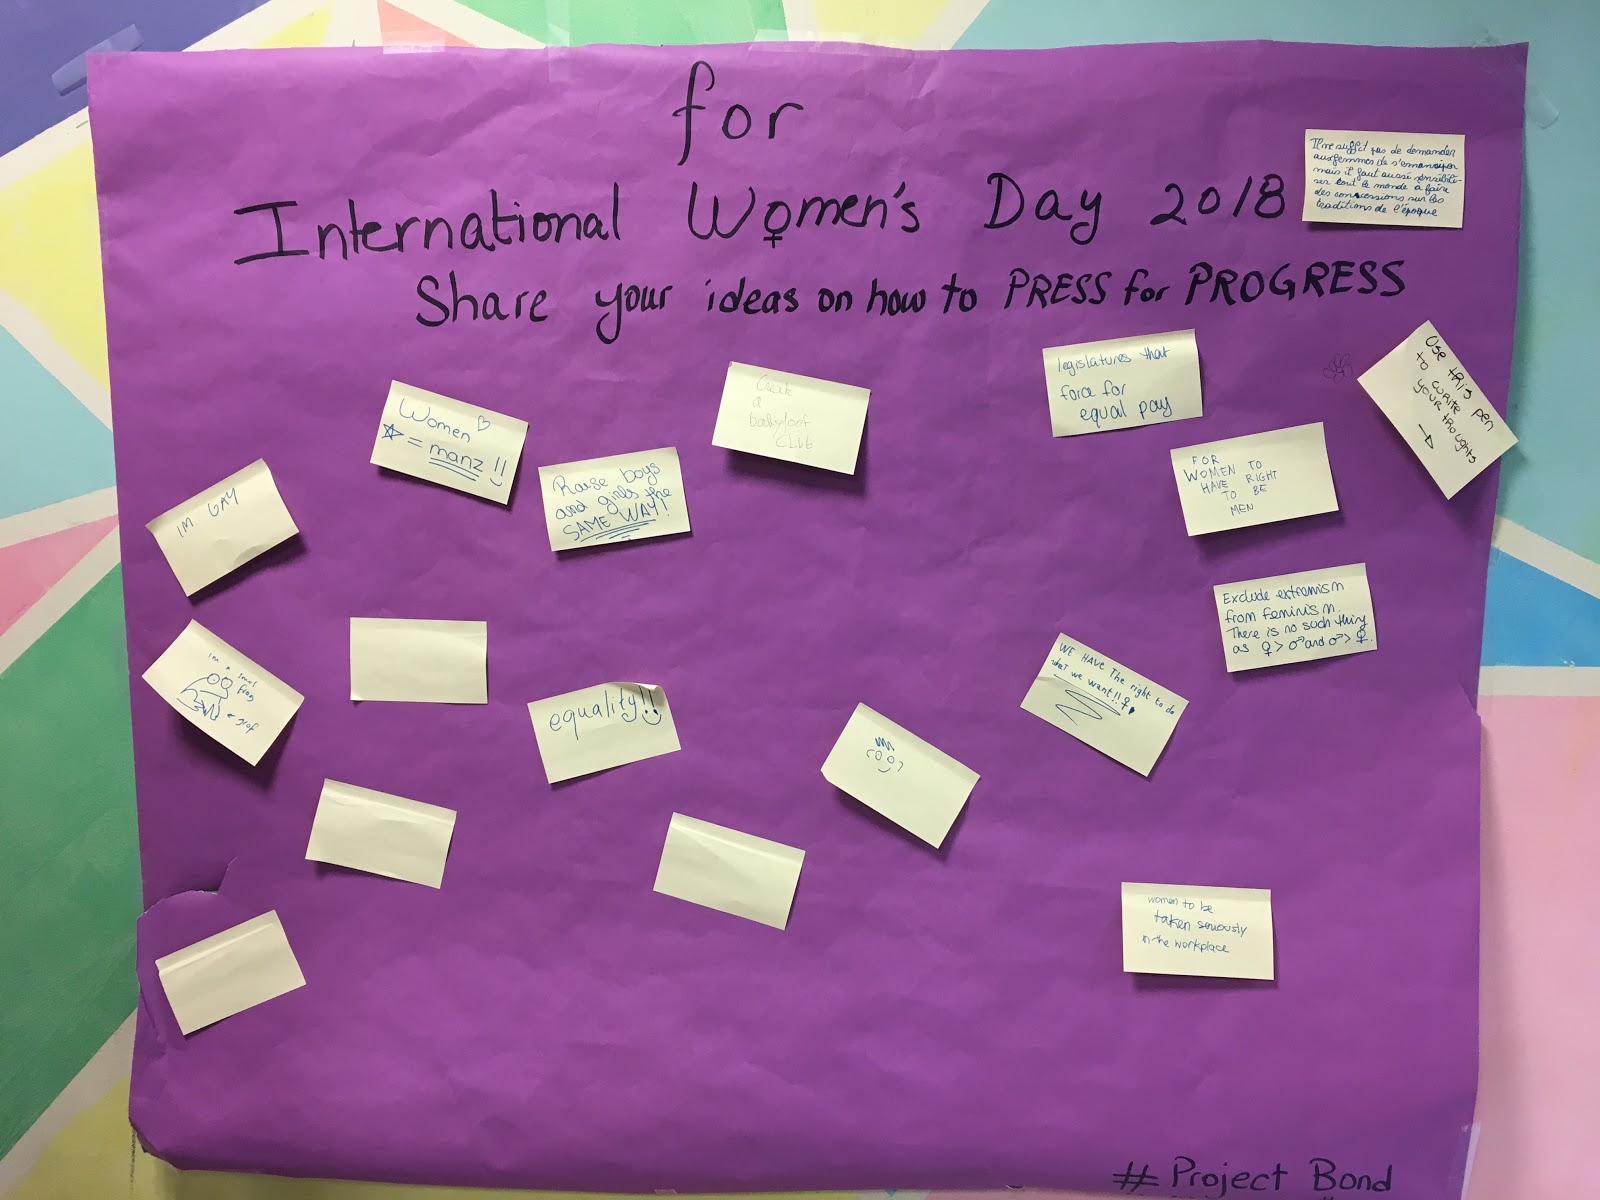 for
International Women's Day 2018
Share your ideas on how to PRESS for PROGRESS
Il ne suffit pas de demander
aux femmes de s'émanciper
mais il faut aussi sensibili-
ser tout le monde à faire
des concessions sur les
traditions de l'époque
Use this pen
to write
your thoughts
→
legislatures that
force for
equal pay
Create
a
babyfoot
CLUB
Women ♡
☆ = manz !!
Raise boys
and girls the
SAME WAY!
IM GAY
FOR
WOMEN TO
HAVE RIGHT
TO BE
MEN
Exclude extremism
from feminism.
There is no such thing
as ♀ > ♂ and ♂ > ♀.
im a small
frog
equality!!
WE HAVE The right to do
what we want!!♀
women to be
taken seriously
in the workplace
# Project Bond